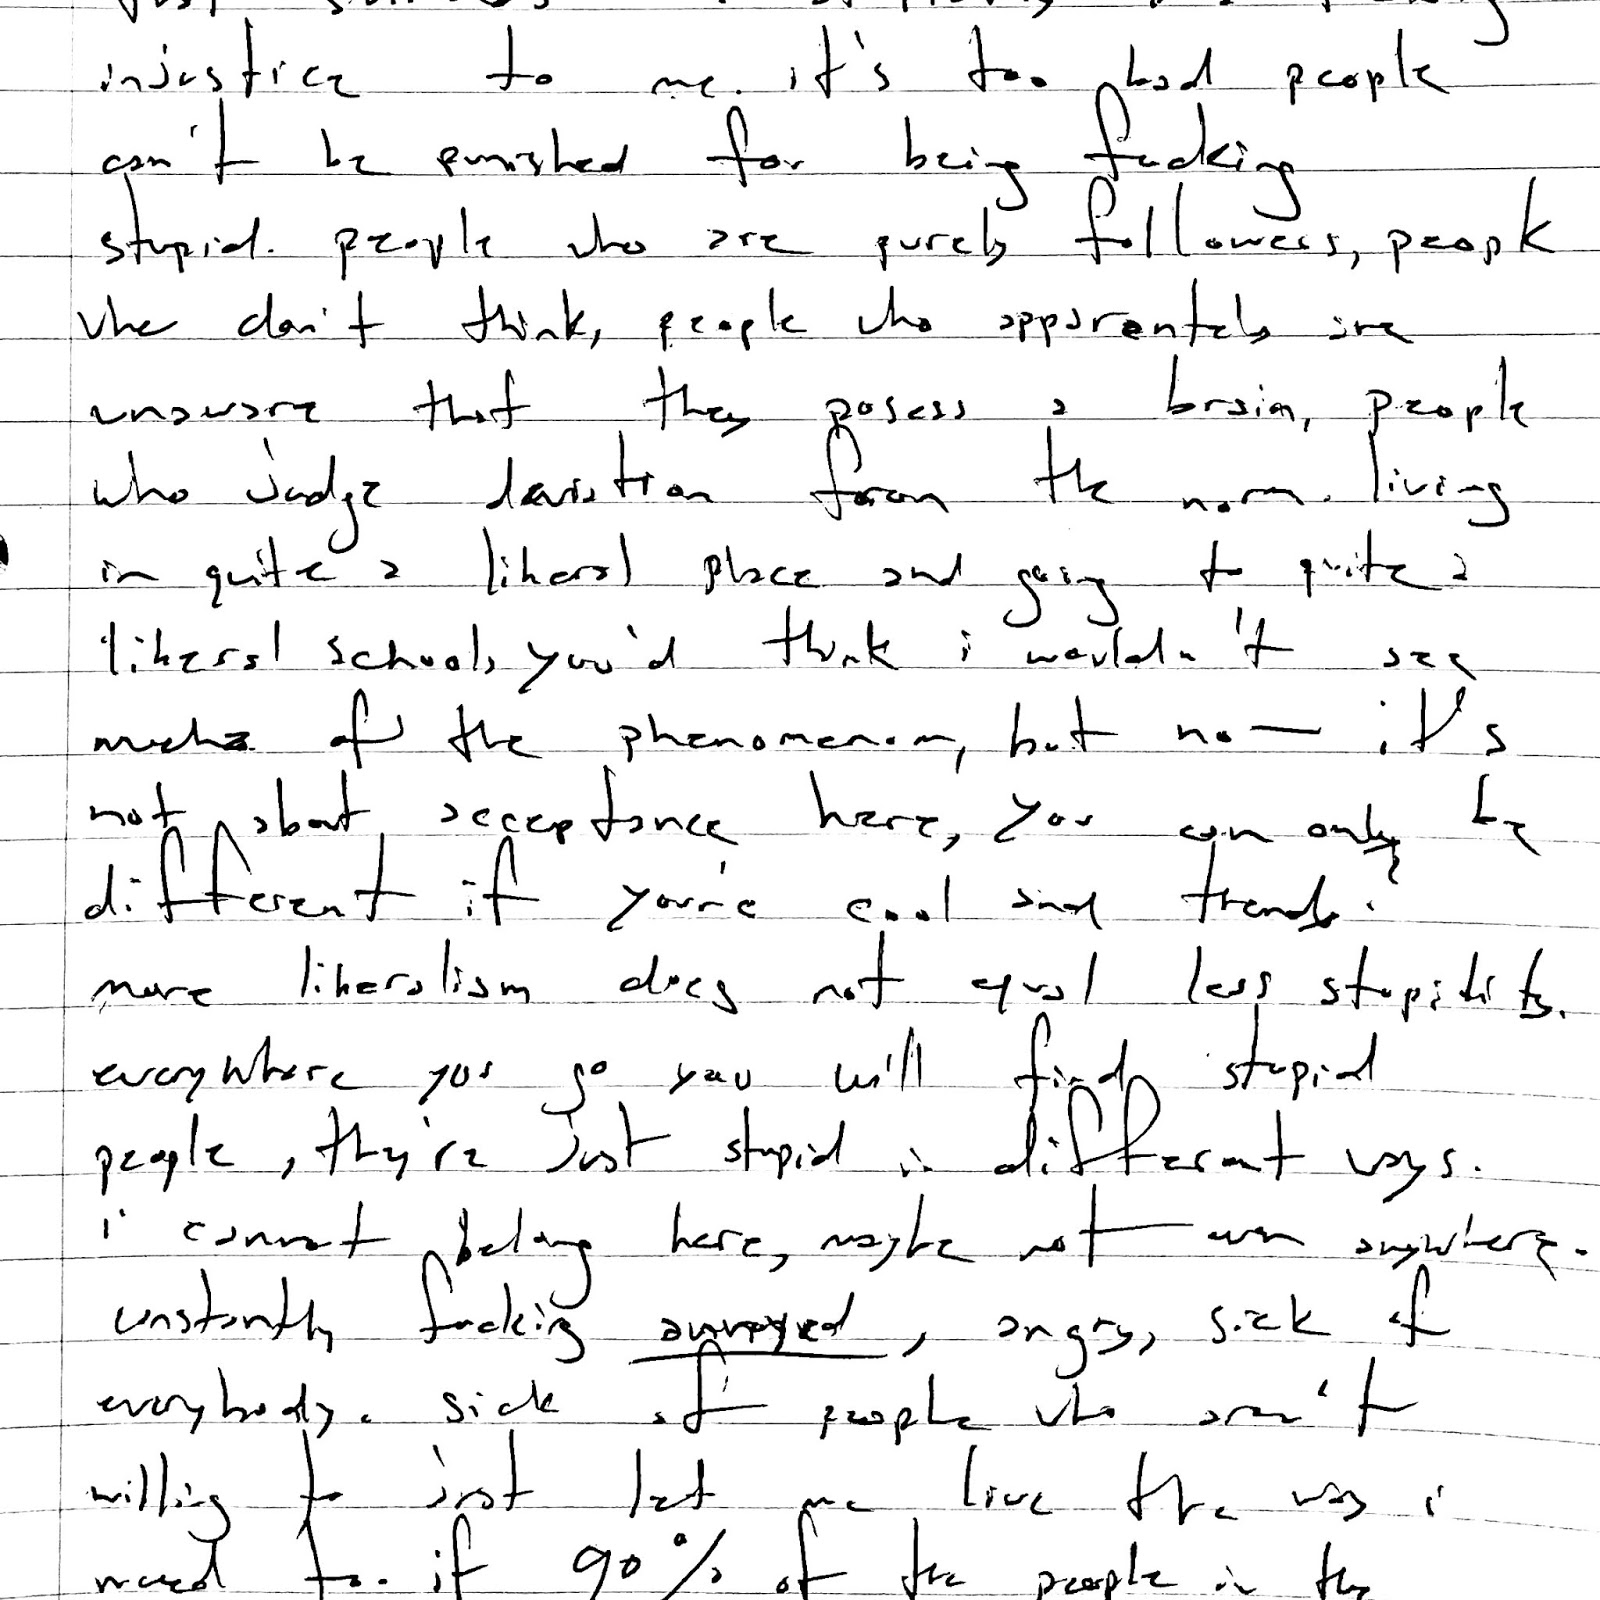 injustice to me. it's too bad people
can't be punished for being fucking
stupid. people who are purely followers, people
who don't think, people who apparently are
unaware that they posess a brain, people
who judge deviation from the norm. living
in quite a liberal place and going to quite a
liberal school, you'd think i wouldn't see
much of the phenomenon, but no — it's
not about acceptance here, you can only be
different if you're cool and trendy.
more liberalism does not equal less stupidity.
everywhere you go you will find stupid
people, they're just stupid in different ways.
i cannot belong here, maybe not even anywhere.
constantly fucking annoyed, angry, sick of
everybody. sick of people who aren't
willing to just let me live the way i
need to. if 90% of the people in the